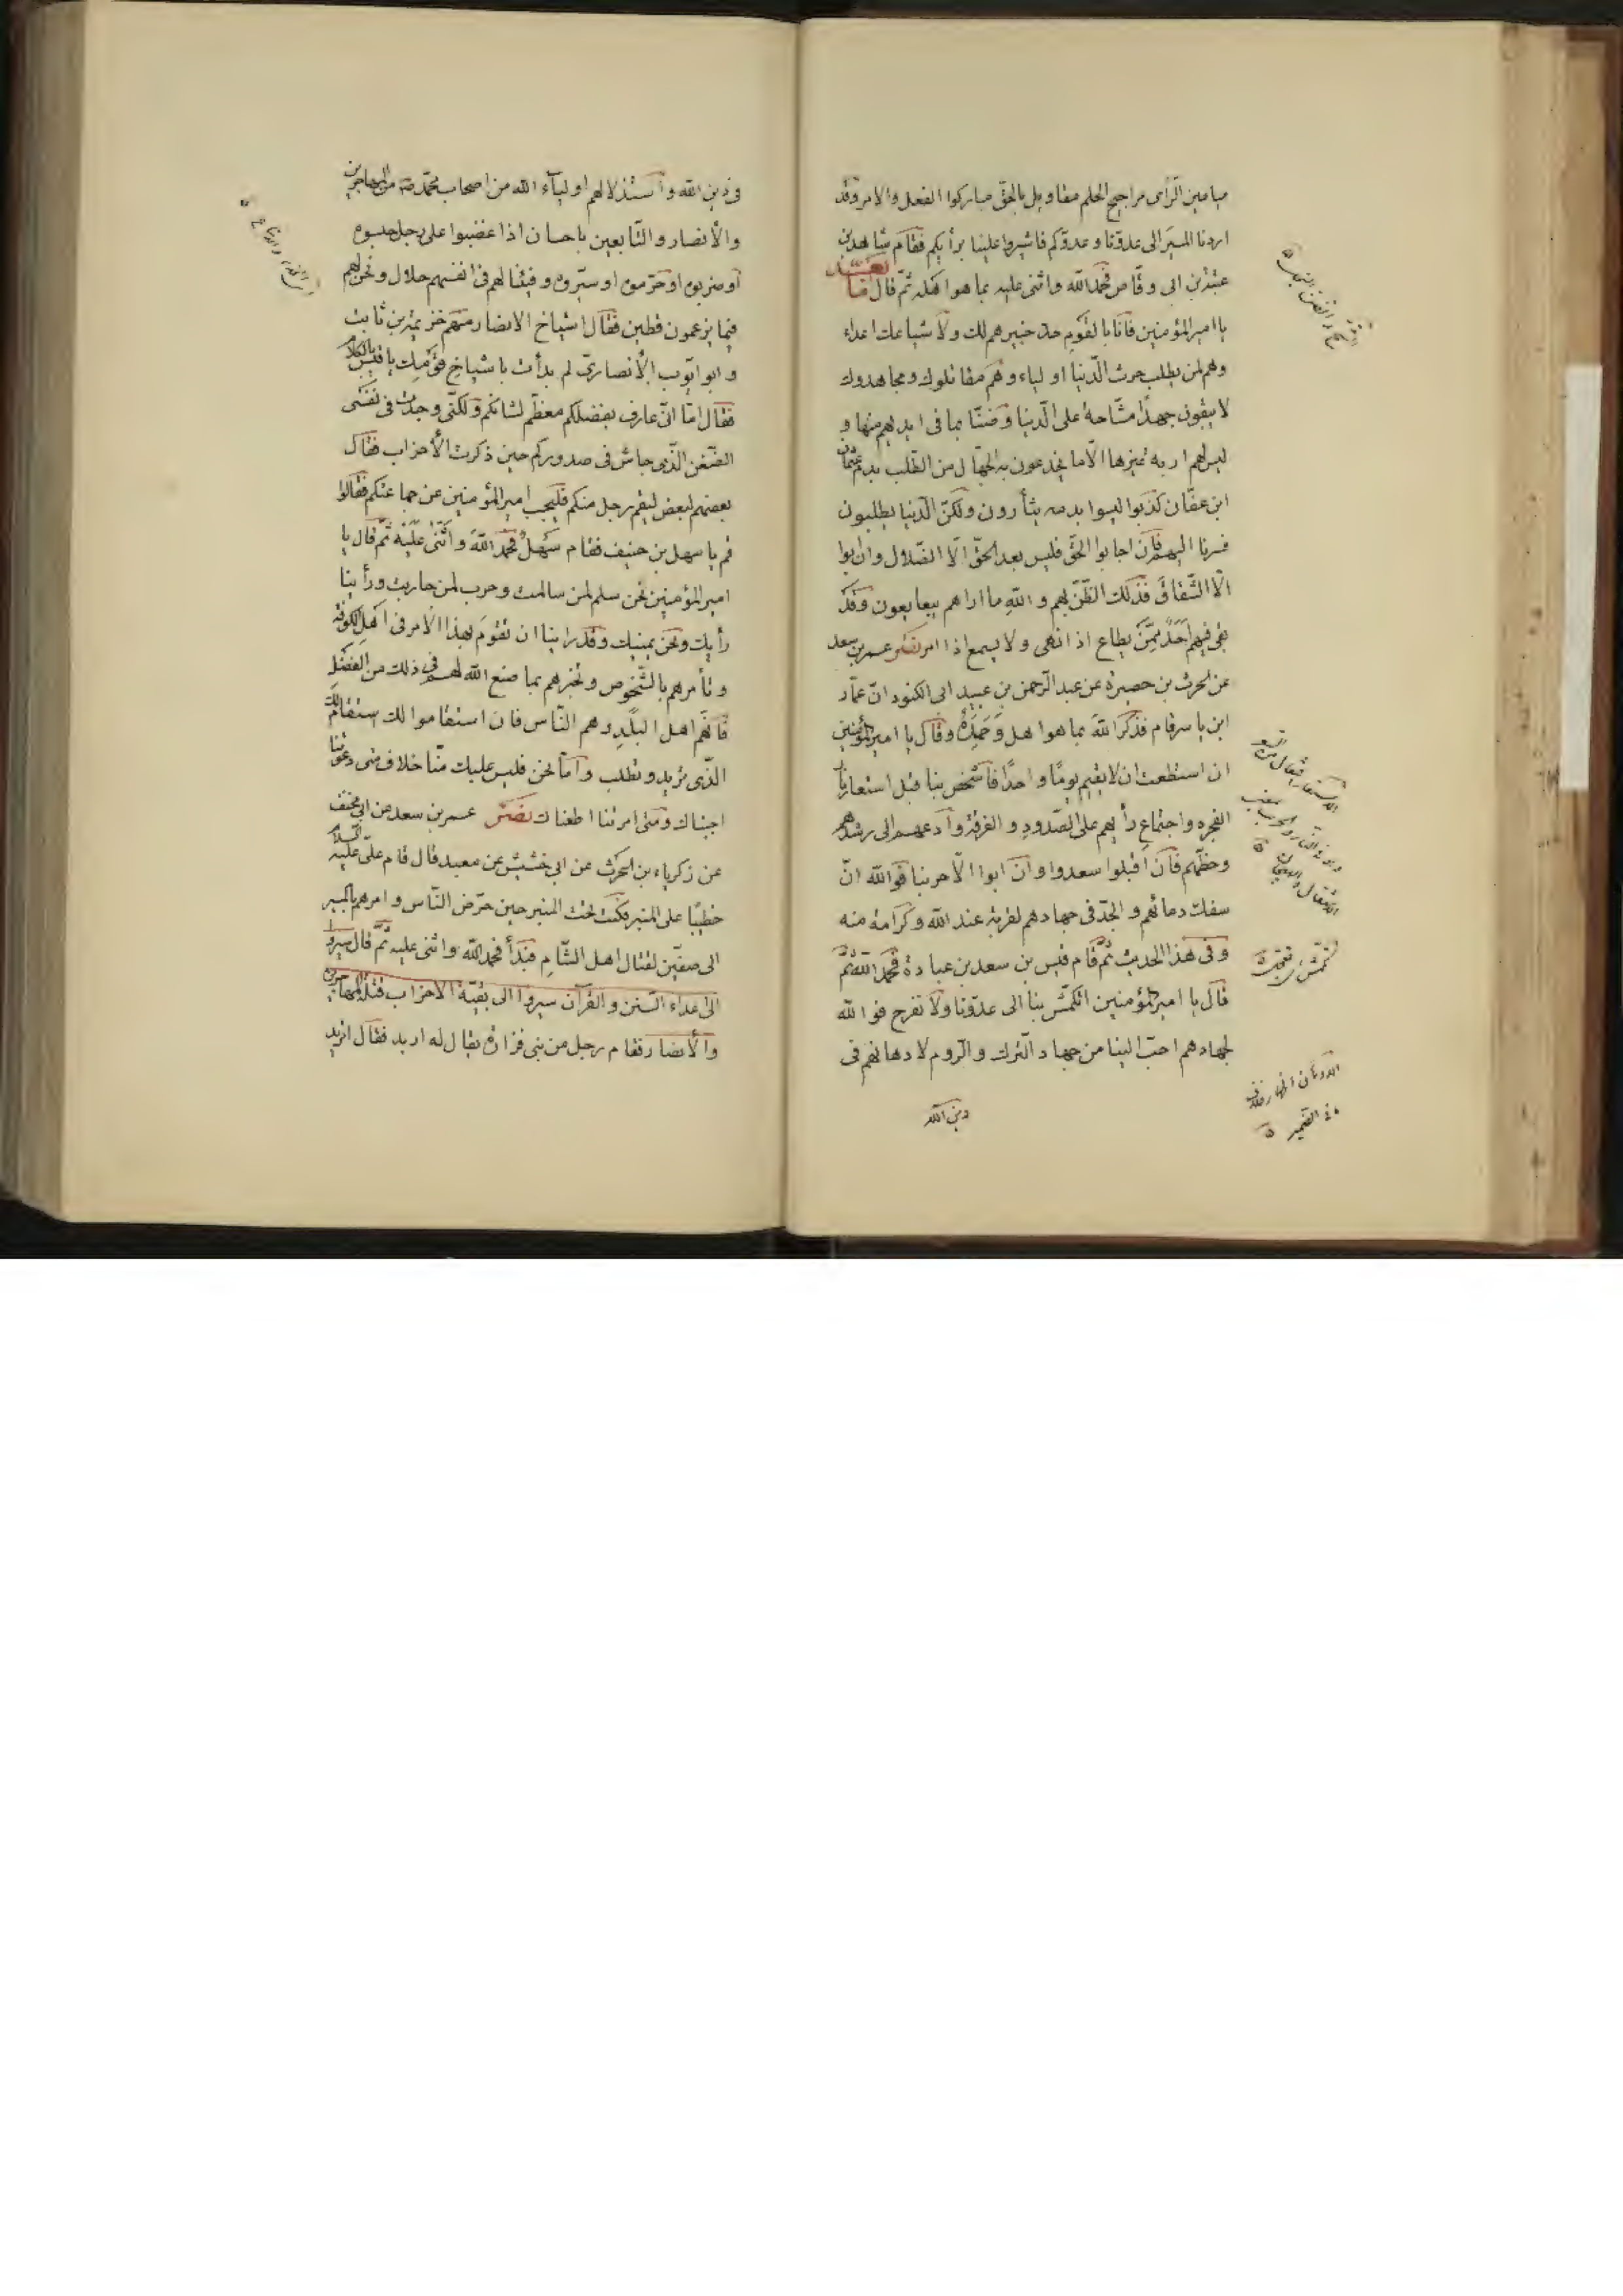 ميامين الرّأى مراجيح الحلم مقاويل بالحقّ مباركوا الفعل والامر وقد
اردنا المسير الى عدوّنا وعدوّكم فاشيروا علينا برأيكم فقام هاشم بن
عتبة بن ابى وقّاص فحمد اللّه واثنى عليه بما هو اهله ثمّ قال امّا بعد
يا امير المؤمنين فانا بالقوم جدّ خبير هم لك ولاشياعك اعداء
وهم لمن يطلب حرث الدّنيا اولياء وهم مقاتلوك ومجاهدوك
لا يبقون جهدًا مشّاحة على الدّنيا وضنّا بما فى ايديهم منها و
ليس لهم اربة غيرها الّا ما يخدعون به الجهّال من الطّلب بدم عثمان
ابن عفّان كذبوا ليسوا بدمه يثأرون ولكنّ الدّنيا يطلبون
فسرنا اليهم فان اجابوا الحقّ فليس بعد الحقّ الّا الضّلال وان ابوا
الّا الشّقاق فذلك الظّنّ بهم واللّه ما اراهم يبايعون وقد
بقى فيهم احد ممّن يطاع اذا نهى ولا يسمع اذا امر نصر عمر بن سعد
عن الحرث بن حصيرة عن عبد الرّحمن بن عبيد ابى الكنود انّ عمّار
ابن ياسر قام فذكر اللّه بما هو اهله وحمده وقال يا امير المؤمنين
ان استطعت ان لا تقيم يومًا واحدًا فاشخص بنا قبل استعار نار
الفجرة واجتماع رأيهم على الصّدود والفرقة وادعهم الى رشدهم
وحظّهم فان اقبلوا سعدوا وان ابوا الّا حربنا فواللّه انّ
سفك دمائهم والجدّ فى جهادهم لقربة عند اللّه وكرامة منه
وفى هذا الحديث ثمّ قام قيس بن سعد بن عبادة فحمد اللّه ثمّ
قال يا امير المؤمنين انكمش بنا الى عدوّنا ولا تعرج فواللّه
لجهادهم احبّ الينا من جهاد التّرك والرّوم لادهانهم فى
دين اللّه
فى دين اللّه واستذلالهم اولياء اللّه من اصحاب محمّد ص من المهاجرين
والأنصار والتّابعين باحسان اذا غضبوا على رجل حبسوه
او ضربوه او حرّموه او سيّروه وفيئنا لهم فى انفسهم حلال ونحن لهم
فيما يزعمون قطين فقال اشياخ الانصار منهم خزيمة بن ثابت
وابو ايّوب الأنصارىّ لم بدأت باشياخ قومك يا قيس بالكلام
فقال امّا انّى عارف بفضلكم معظّم لشانكم ولكنّى وجدت فى نفسى
الضّغن الّذى جاش فى صدوركم حين ذكرت الأحزاب فقال
بعضهم لبعض ليقم رجل منكم فليجب امير المؤمنين عن جماعتكم فقالوا
قم يا سهل بن حنيف فقام سهل فحمد اللّه واثنى عليه ثمّ قال يا
امير المؤمنين نحن سلم لمن سالمت وحرب لمن حاربت ورأينا
رأيك ونحن يمينك وقد راينا ان تقوم بهذا الأمر فى اهل الكوفة
وتأمرهم بالشّخوص وتخبرهم بما صنع اللّه لهم فى ذلك من الفضل
فانّهم اهل البلد وهم النّاس فان استقاموا لك استقام لك
الّذى تريد وتطلب وامّا نحن فليس عليك منّا خلاف متى دعوتنا
اجبناك ومتى امرتنا اطعناك نصر عمر بن سعد عن ابى مخنف
عن زكرياء بن الحرث عن ابى خشيش عن معبد قال قام علىّ عليه السّلام
خطيبًا على المنبر فكنت تحت المنبر حين حرّض النّاس وامرهم بالمسير
الى صفّين لقتال اهل الشّام فبدأ فحمد اللّه واثنى عليه ثمّ قال سيروا
الى اعداء السّنن والقرآن سيروا الى بقيّة الاحزاب قتلة المهاجرين
والأنصار فقام رجل من بنى فزارة يقال له اربد فقال اتريد